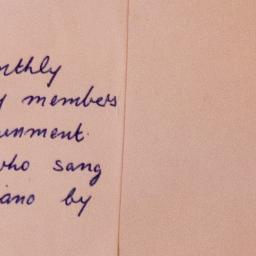 nthly
y members
unment.
who sang
iano by